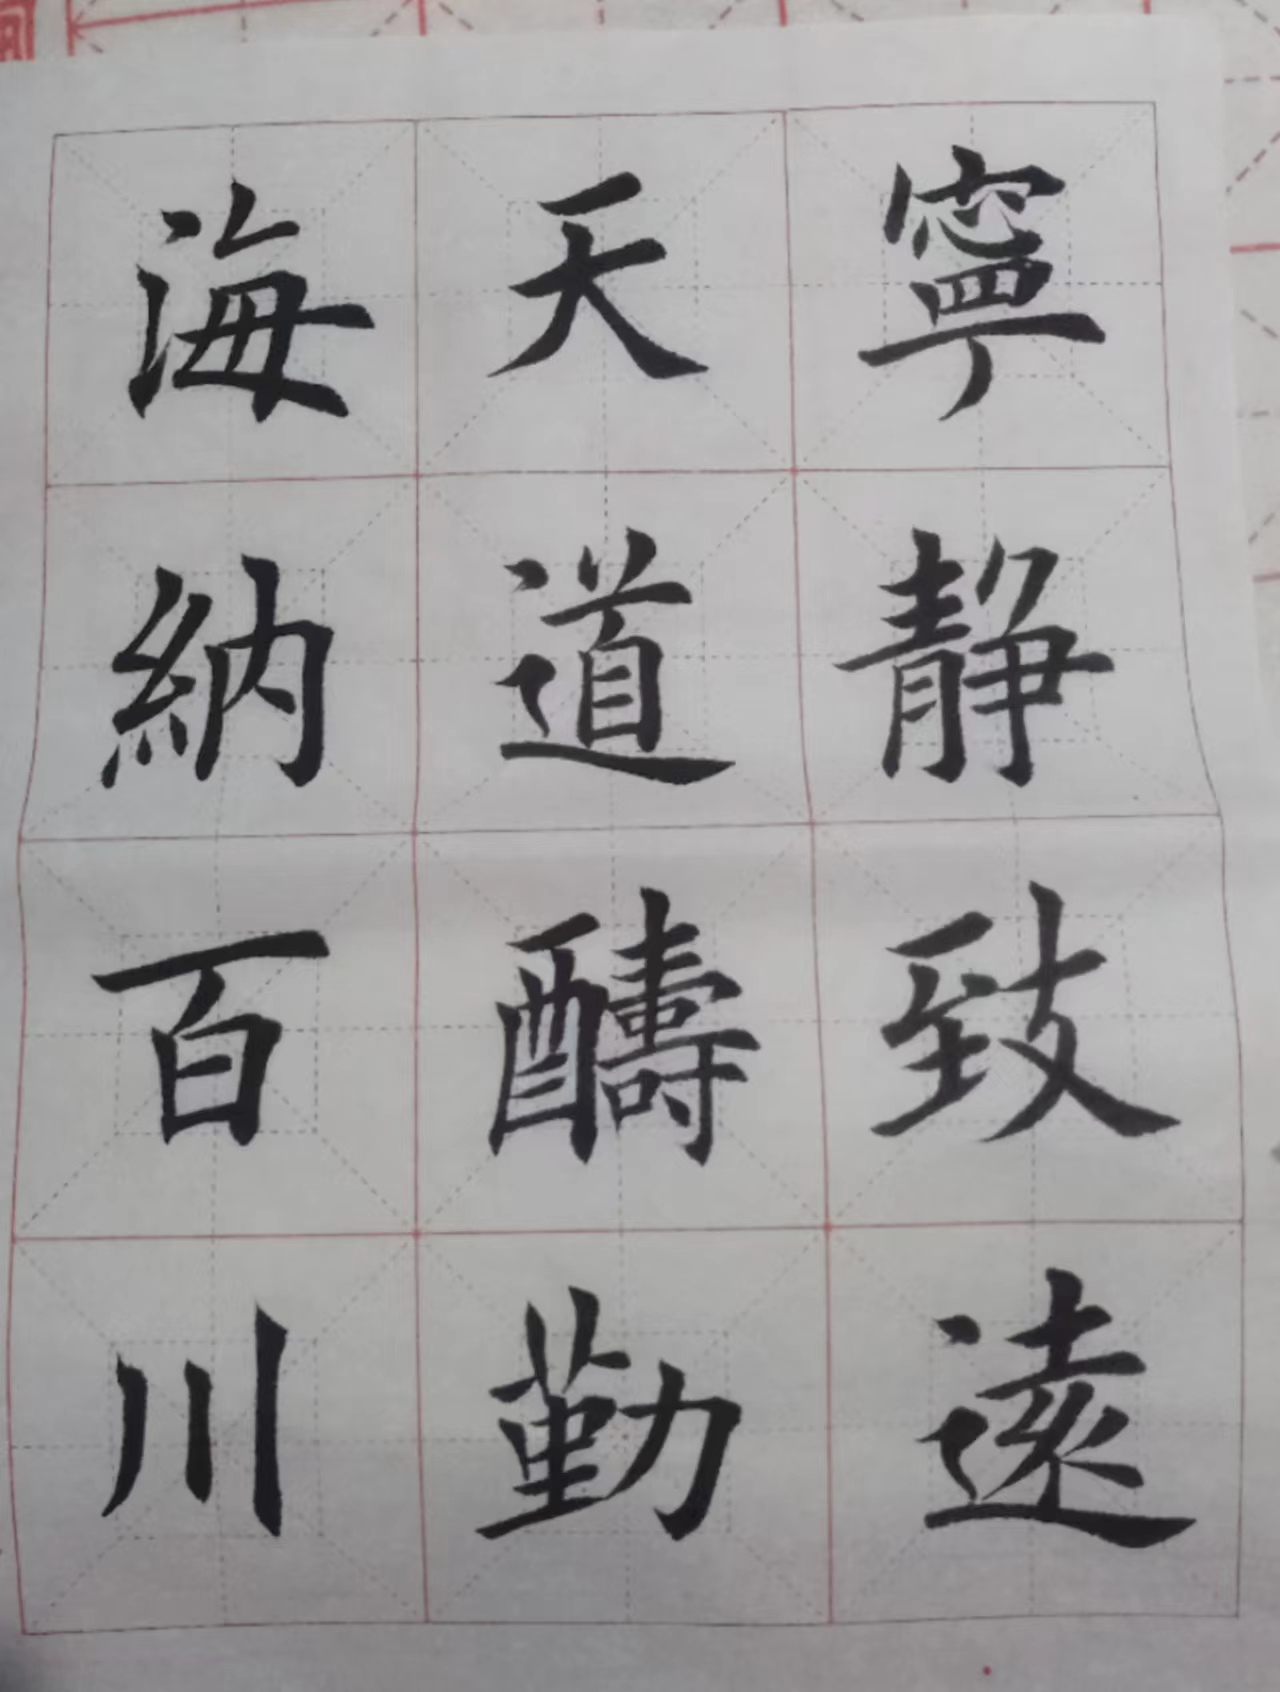 寧靜致遠
天道酬勤
海納百川